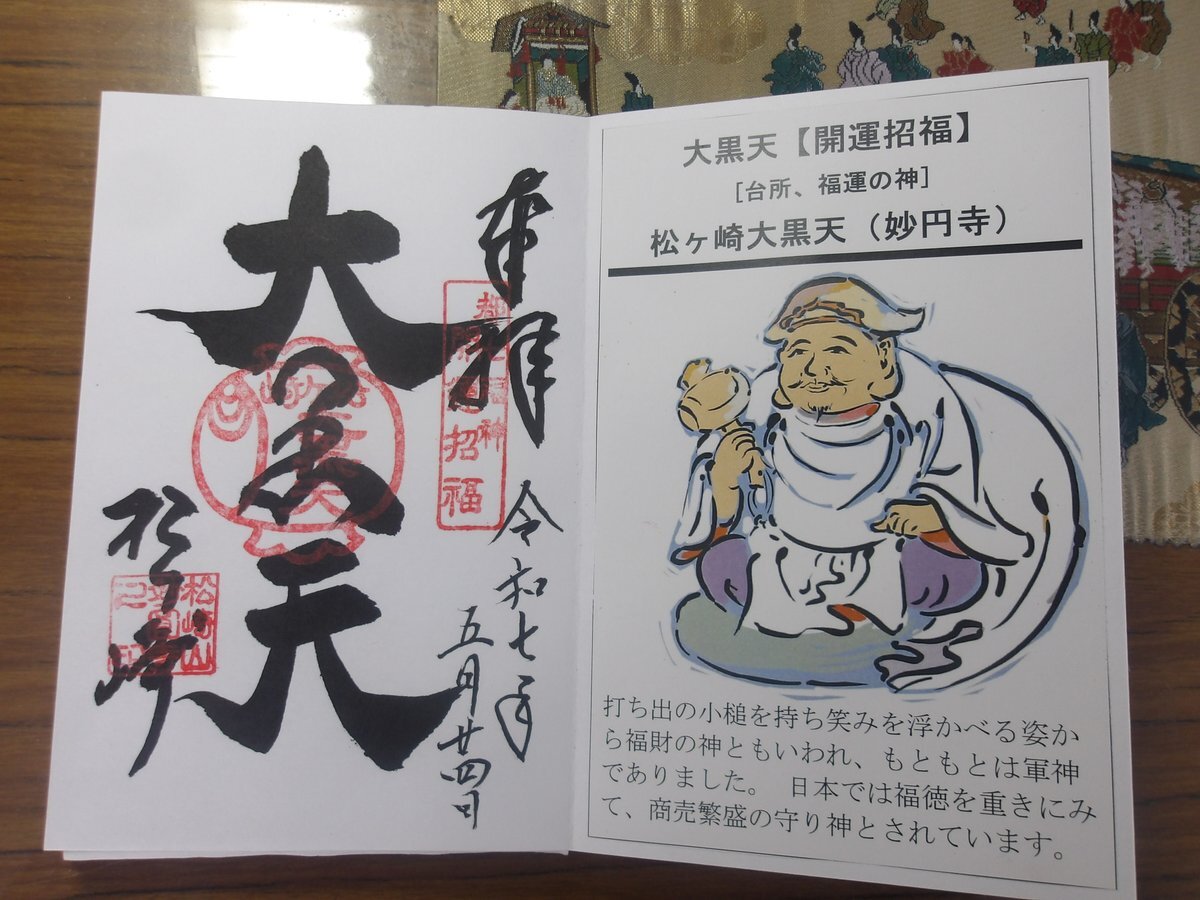 奉拝
令和七年
五月廿四日
大黒天
松ケ崎
招福
松崎山
大黒天【開運招福】
[台所、福運の神]
松ヶ崎大黒天（妙円寺）
打ち出の小槌を持ち笑みを浮かべる姿か
ら福財の神ともいわれ、もともとは軍神
でありました。 日本では福徳を重きにみ
て、商売繁盛の守り神とされています。